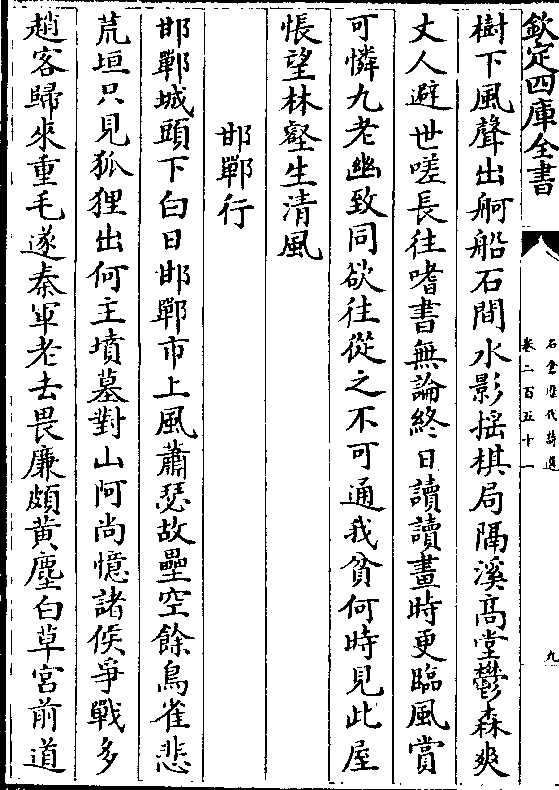 欽定四庫全書
石倉歷代詩選
卷二百五十一
九
樹下風聲出舸船石間水影揺棋局隔溪髙堂鬱森爽
丈人避世嗟長往嗜書無論終日讀讀畫時更臨風賞
可憐九老幽致同欲往從之不可通我貧何時見此屋
悵望林壑生清風
邯鄲行
邯鄲城頭下白日邯鄲市上風蕭瑟故壘空餘鳥雀悲
荒垣只見狐狸出何主墳墓對山阿尚憶諸侯爭戰多
趙客歸來重毛遂秦軍老去畏廉頗黄塵白草宫前道